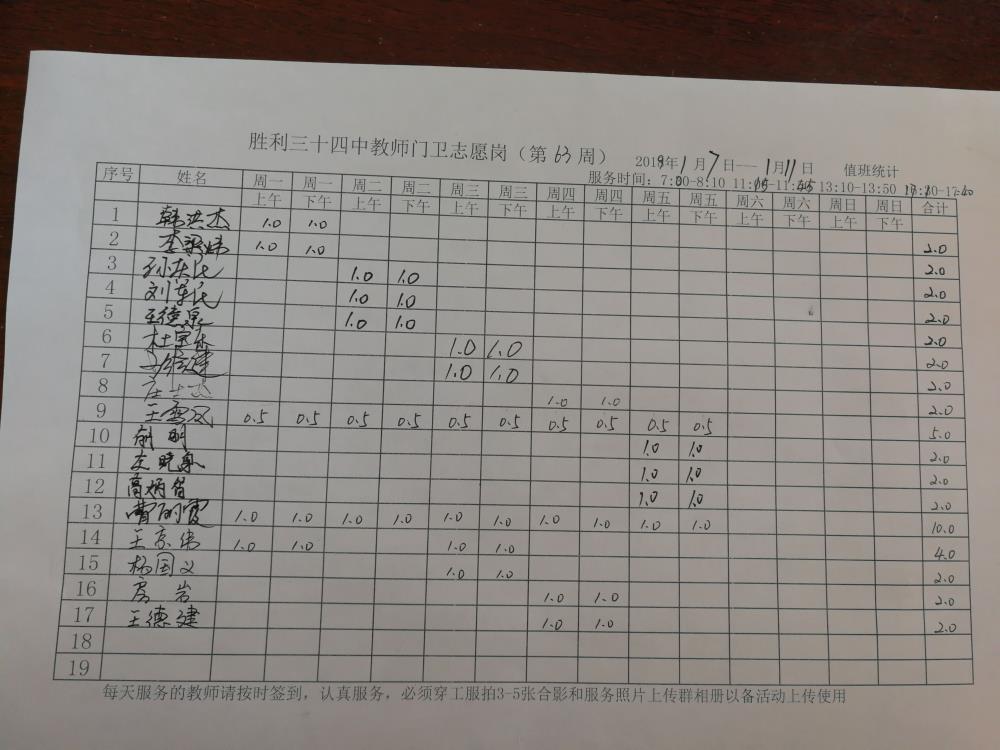 胜利三十四中教师门卫志愿岗（第63周） 2019年1月7日---1月11日 值班统计
服务时间：7:00-8:10 11:45 13:10-13:50
序号 姓名 周一 周一 周二 周二 周三 周三 周四 周四 周五 周五 周六 周六 周日 周日 合计
上午 下午 上午 下午 上午 下午 上午 下午 上午 下午 上午 下午 上午 下午
1 韩洪杰 1.0 1.0 2.0
2 1.0 1.0 2.0
3 1.0 1.0 2.0
4 1.0 1.0 2.0
5 王德泉 1.0 1.0 2.0
6 1.0 1.0 2.0
7 1.0 1.0 2.0
8 1.0 1.0 2.0
9 0.5 0.5 0.5 0.5 0.5 0.5 0.5 0.5 0.5 0.5 5.0
10 1.0 1.0 2.0
11 1.0 1.0 2.0
12 1.0 1.0 2.0
13 1.0 1.0 1.0 1.0 1.0 1.0 1.0 1.0 1.0 1.0 10.0
14 王京伟 1.0 1.0 1.0 1.0 4.0
15 杨国义 1.0 1.0 2.0
16 房岩 1.0 1.0 2.0
17 王德建 1.0 1.0 2.0
18
19
每天服务的教师请按时签到，认真服务，必须穿工服拍3-5张合影和服务照片上传群相册以备活动上传使用